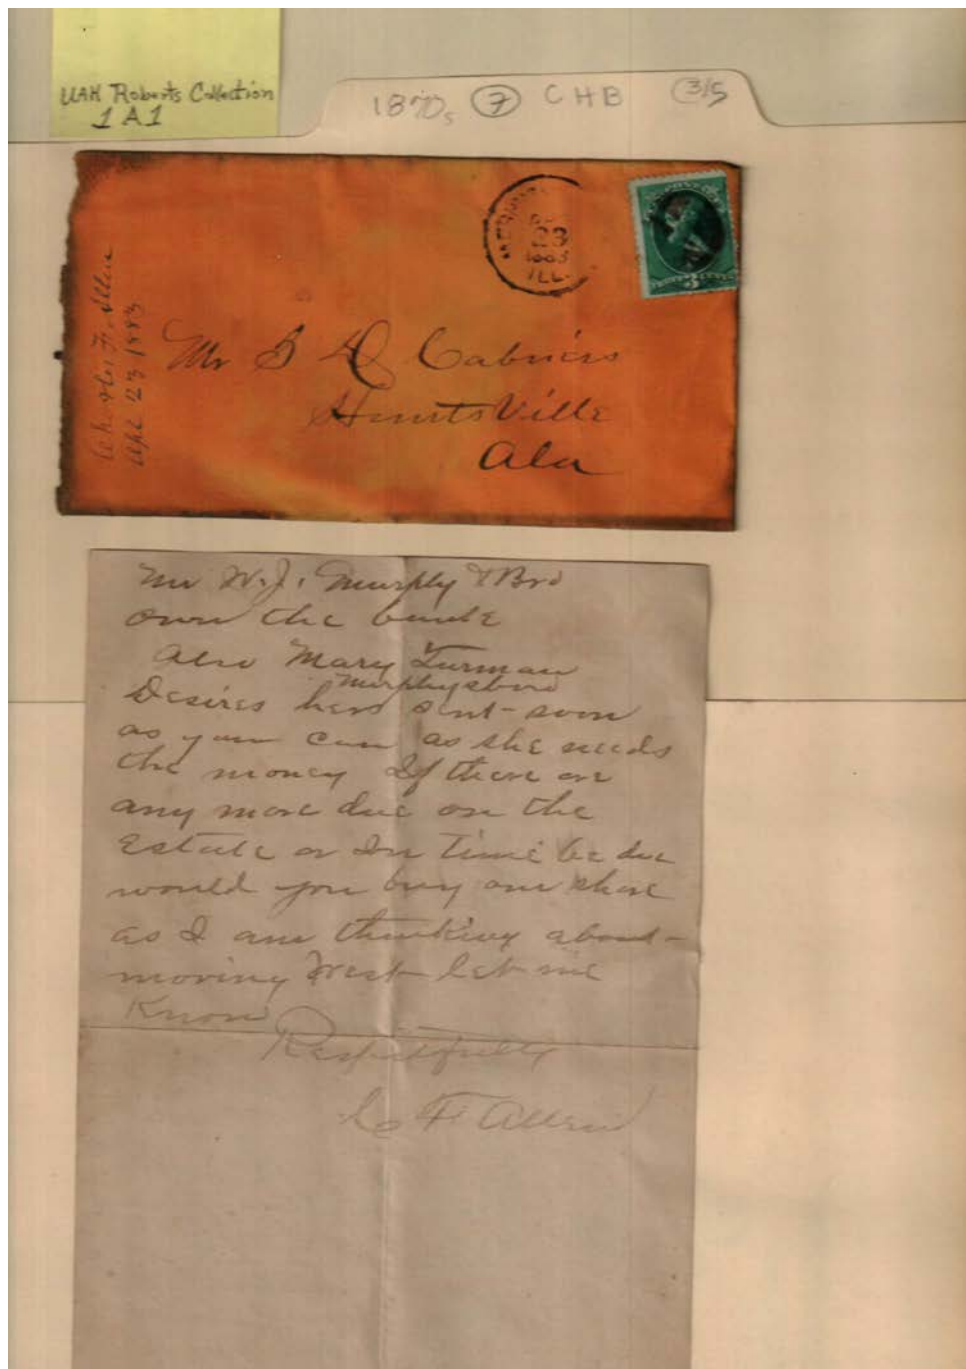 UAH Roberts Collection
1 A 1
1870s 7 CHB 3/5
23
1883
ILL.
3
Apl 23 1883
Mr S D Cabiniss
HuntsVille
Ala
Mr W. J. Murphy & Bro
own the bank
Also Mary Turman
Murphysboro
Desires hers sent soon
as you can as she needs
the money If there are
any more due on the
Estate or In time be due
would you buy our share
as I am thinking about
moving West let me
Know
Respectfully
C F Allen